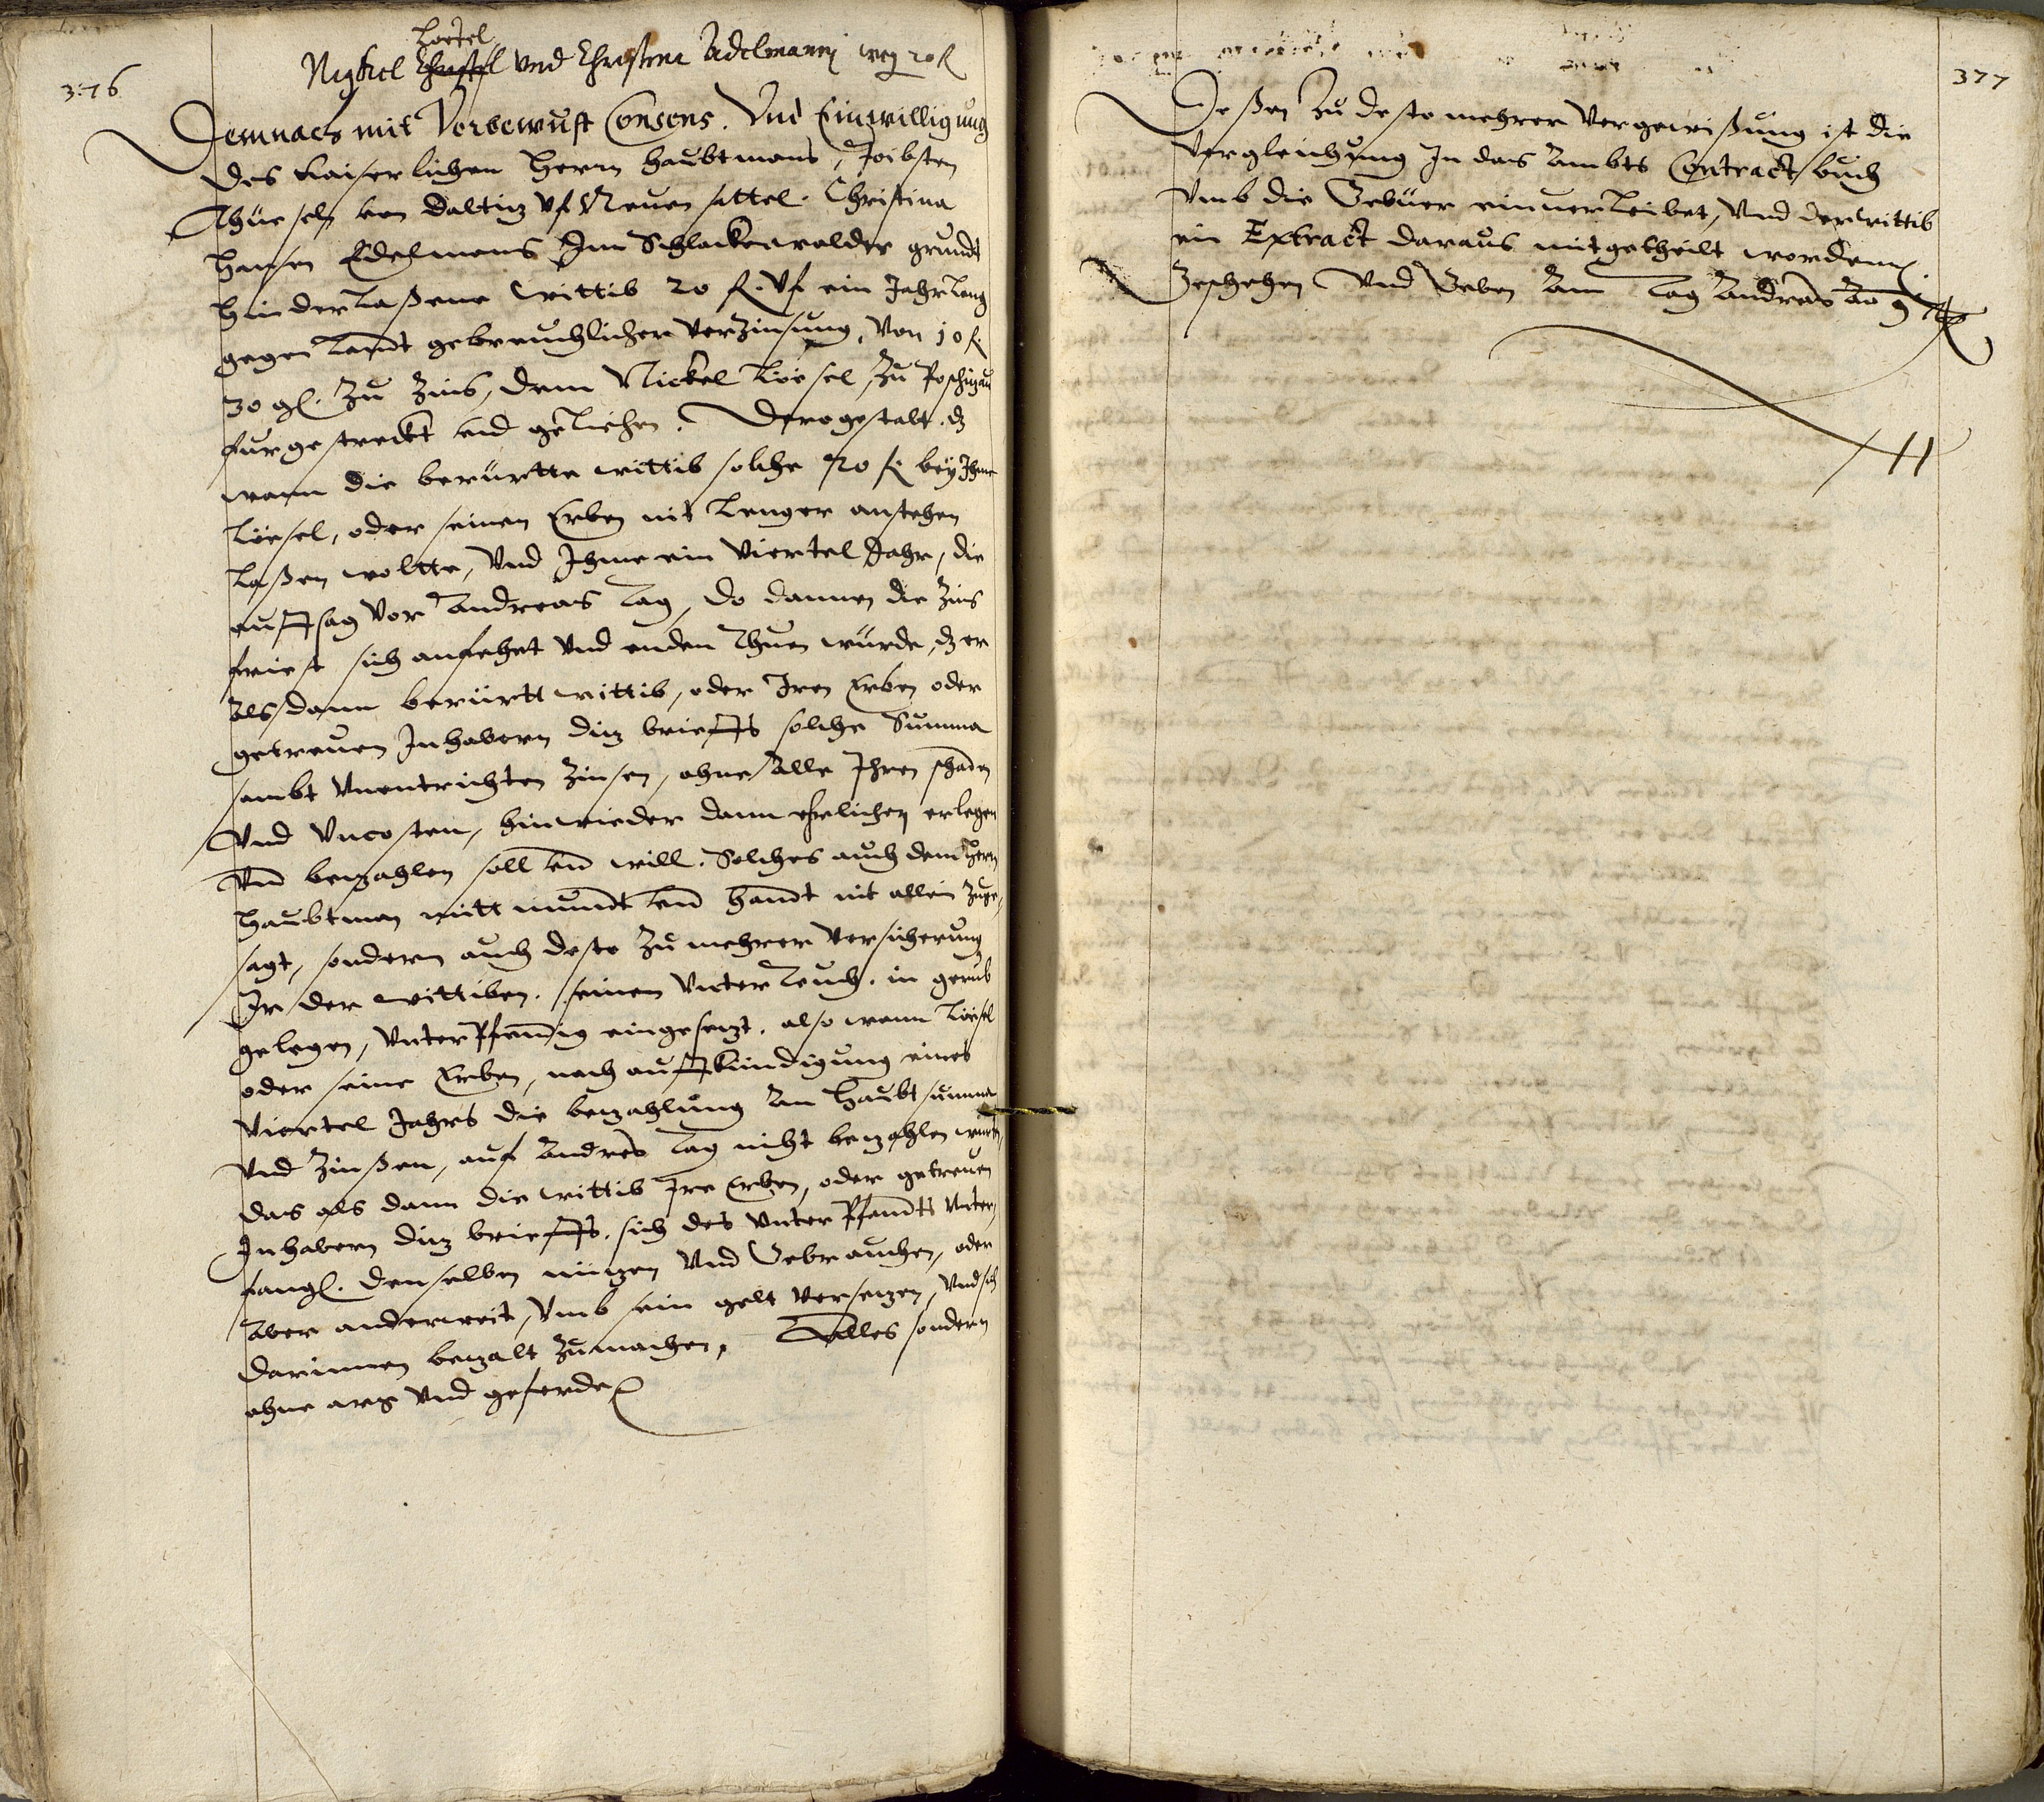 376
Loesel
Nickel Christl Vnd Christina Adelmanin weg 20 fl
Demnach mit Vorbewust Consens. Vnd Einwilligung
des Kaiserlichen Herrn Haubtmans, Jobsten
Thüesels von Daltiz Vf Neuen sattel. Christina
Hansen Edelmans Im Schlackenwalder grundt
hinderlaßene wittib 20 fl. Vf ein Jahr lang
gegen landt gebreuchlicher Verzinsung, Von 10 fl.
30 gl. Zu Zins, dem Nickel Löesel, Zu Poschizau
furgestreckt vnd geliehen. Derogestalt. dz
wann die berürtte wittib solche 20 fl. bey Ihme
Löesel, oder seinen Erben nit lenger anstehen
laßen woltte, Vnd Ihme ein Viertel Jahr, die
auffsag Vor Andreas Tag, do dannen die Zins
friest sich anfehet Vnd enden Thuen würde, dz er
Als dann berürtt wittib, oder Iren Erben oder
getreuen Inhabern diz brieffs solche Summa
sambt Vnentrichten Zinsen, ohne Alle Ihren schaden
Vnd Vncosten, hinwieder dann ehrlichen erlegen
Vnd bezahlen soll vnd will. Solches auch dem Herrn
Haubtman mitt mundt vnd handt nit allein Zuge,
sagt, sondern auch desto Zu mehrer Versicherung
Ir der wittiben. seinen Vnter Teuch. in grub
gelegen, Vnterpfendig eingesezt. also wann Löesel
oder seine Erben, nach auffkündigung eines
Viertel Jahrs die bezahlung An Haubt summa
Vnd Zinßen, auf Andres Tag nicht bezahlen wurden,
das als dann die wittib Ire Erben, oder getreuen
Inhabern diz brieffs. sich des Vnter Pfandts Vnter,
fangen. denselben nüzen Vnd Gebrauchen, oder
Aber anderweit, Vmb sein gelt Versezen, Vnd sich
darinnen bezalt Zumachen, Alles sondern
ohne arg Vnd geferde
377
Deßen Zu desto mehrer Vergewißung ist die
Vergleichung In das Ambts Contract buch
Vmb die Gebüer einuerleibet, Vnd der wittib
ein Extract daraus mitgetheilt worden.
Geschehen Vnd Geben Am Tag Andreas Ao